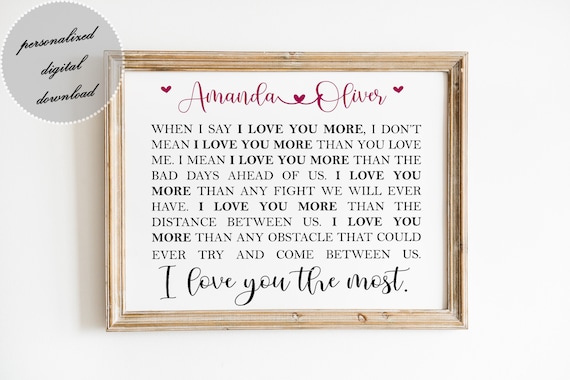 personalized
digital
download
Amanda Oliver
WHEN I SAY I LOVE YOU MORE, I DON'T
MEAN I LOVE YOU MORE THAN YOU LOVE
ME. I MEAN I LOVE YOU MORE THAN THE
BAD DAYS AHEAD OF US. I LOVE YOU
MORE THAN ANY FIGHT WE WILL EVER
HAVE. I LOVE YOU MORE THAN THE
DISTANCE BETWEEN US. I LOVE YOU
MORE THAN ANY OBSTACLE THAT COULD
EVER TRY AND COME BETWEEN US.
I love you the most.